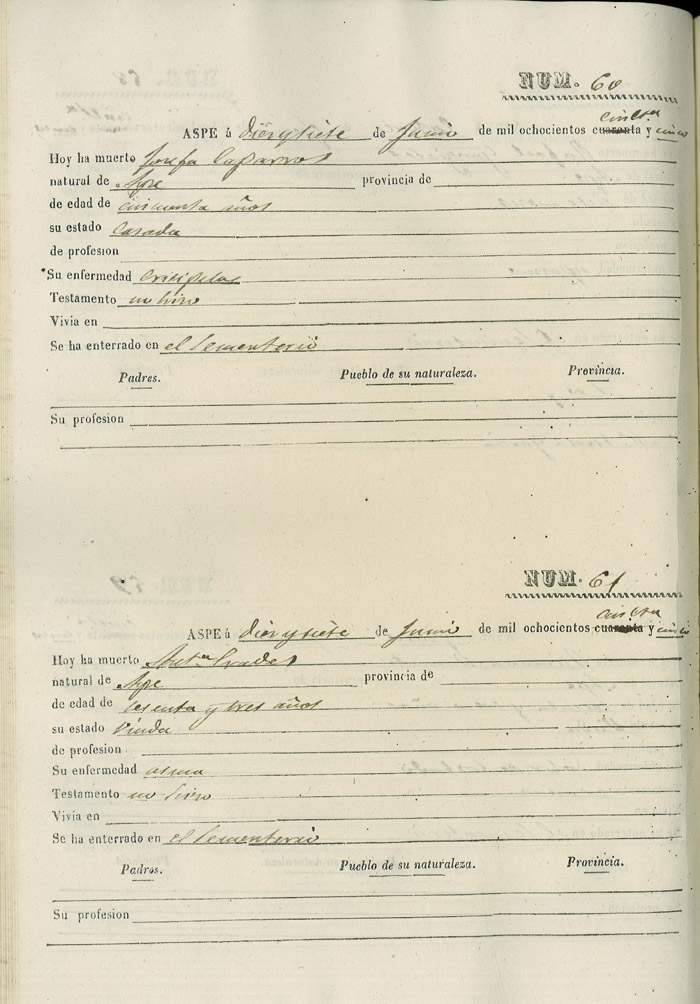 NUM. 60
cincta
ASPE á Diez y siete de Junio de mil ochocientos cuarenta y cinco
Hoy ha muerto Josefa Caparros
natural de Aspe provincia de
de edad de cincuenta años
su estado Casada
de profesion
Su enfermedad Erisipelas
Testamento no hizo
Vivia en
Se ha enterrado en el Sementerio
Padres. Pueblo de su naturaleza. Provincia.
Su profesion
NUM. 61
cincta
ASPE á Diez y siete de Junio de mil ochocientos cuarenta y cinco
Hoy ha muerto Anta Prades
natural de Aspe provincia de
de edad de sesenta y tres años
su estado Viuda
de profesion
Su enfermedad asma
Testamento no hizo
Vivia en
Se ha enterrado en el Sementerio
Padres. Pueblo de su naturaleza. Provincia.
Su profesion